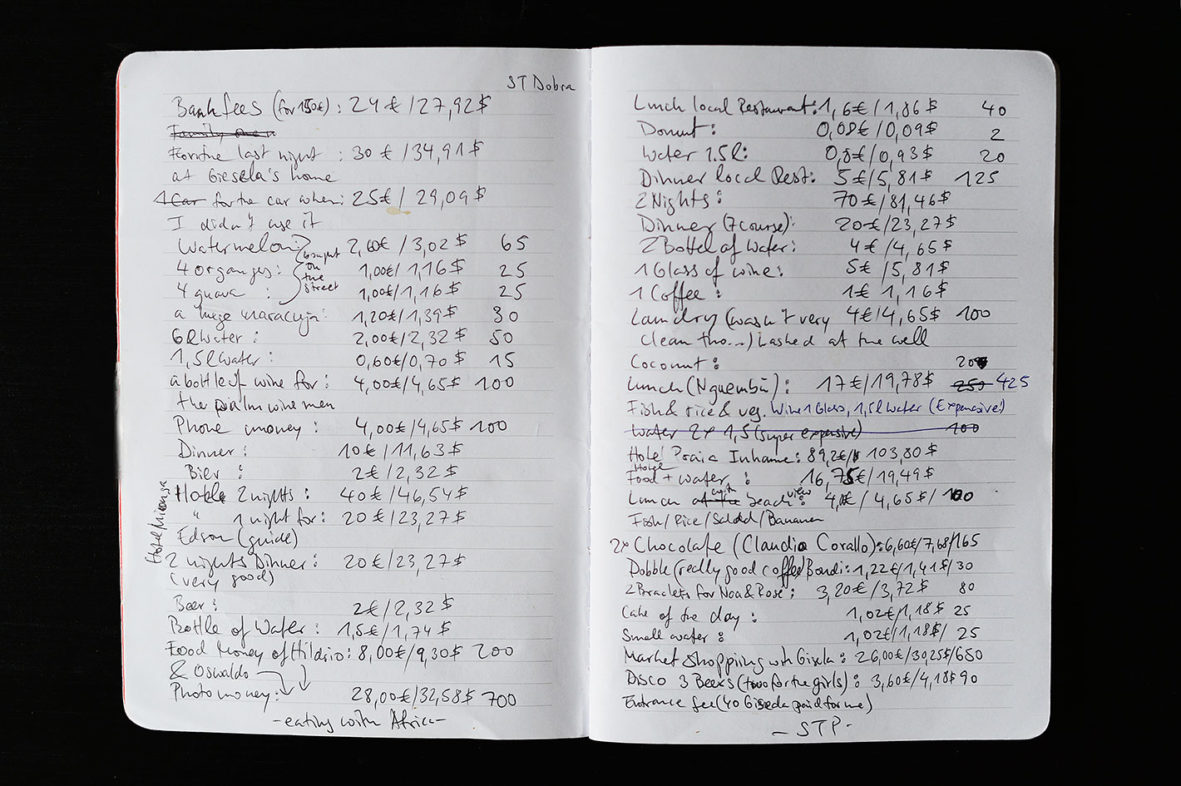 ST Dobra
Bank fees (for 150€): 24€/27,92$
For the last night : 30€/34,91$
at Giesela's home
1 Car for the car when: 25€/29,09$
I didn't use it
Watermelon: 2,60€/3,02$ 65
bought on the street
4 organges: 1,00€/1,16$ 25
4 guava : 1,00€/1,16$ 25
a huge maracuja: 1,20€/1,39$ 30
6l Water : 2,00€/2,32$ 50
1,5l Water : 0,60€/0,70$ 15
a bottle of wine for : 4,00€/4,65$ 100
the palm wine men
Phone money : 4,00€/4,65$ 100
Dinner : 10€/11,63$
Bier : 2€/2,32$
Hotel 2 nights : 40€/46,54$
" 1 night for: 20€/23,27$
Edson (guide)
Hotel
2 nights Dinner: 20€/23,27$
(very good)
Beer : 2€/2,32$
Bottle of Water : 1,5€/1,74$
Food Money of Hildio: 8,00€/9,30$ 200
& Oswaldo
Photo money: 28,00€/32,58$ 700
-eating with Africa-
Lunch local Restaurant: 1,6€/1,86$ 40
Donut : 0,08€/0,09$ 2
Water 1.5l: 0,8€/0,93$ 20
Dinner local Rest: 5€/5,81$ 125
2 Nights : 70€/81,46$
Dinner (7 course): 20€/23,27$
2 Bottel of Water: 4€/4,65$
1 Glass of wine: 5€/5,81$
1 Coffee : 1€ 1,16$
Laundry (wasn't very 4€/4,65$ 100
clean tho...) washed at the well
Coconut : 20
Lunch (Nguembú): 17€/19,78$ 250 425
Fish & rice & veg. Wine 1 Glass, 1,5l Water (Expensive)
Water 2x 1,5 (super expensive) 100
Hotel Praia Inhame: 89,2€/103,80$
Food + water : 16,75€/19,49$
Lunch at the with beach view: 4€/4,65$/100
Fish/Rice/Salad/Bananen
2x Chocolate (Claudio Corallo): 6,60€/7,68/165
Dobble (really good coffee Bondi: 1,22€/1,41$/30
2 Bracelets for Noa & Rose : 3,20€/3,72$ 80
Cake of the day : 1,02€/1,18$ 25
Small water : 1,02€/1,18$/ 25
Market Shopping with Gisela : 26,00€/30,25$/650
Disco 3 Beers (two for the girls) : 3,60€/4,18$ 90
Entrance fee (40 Giseda paid for me)
- STP -